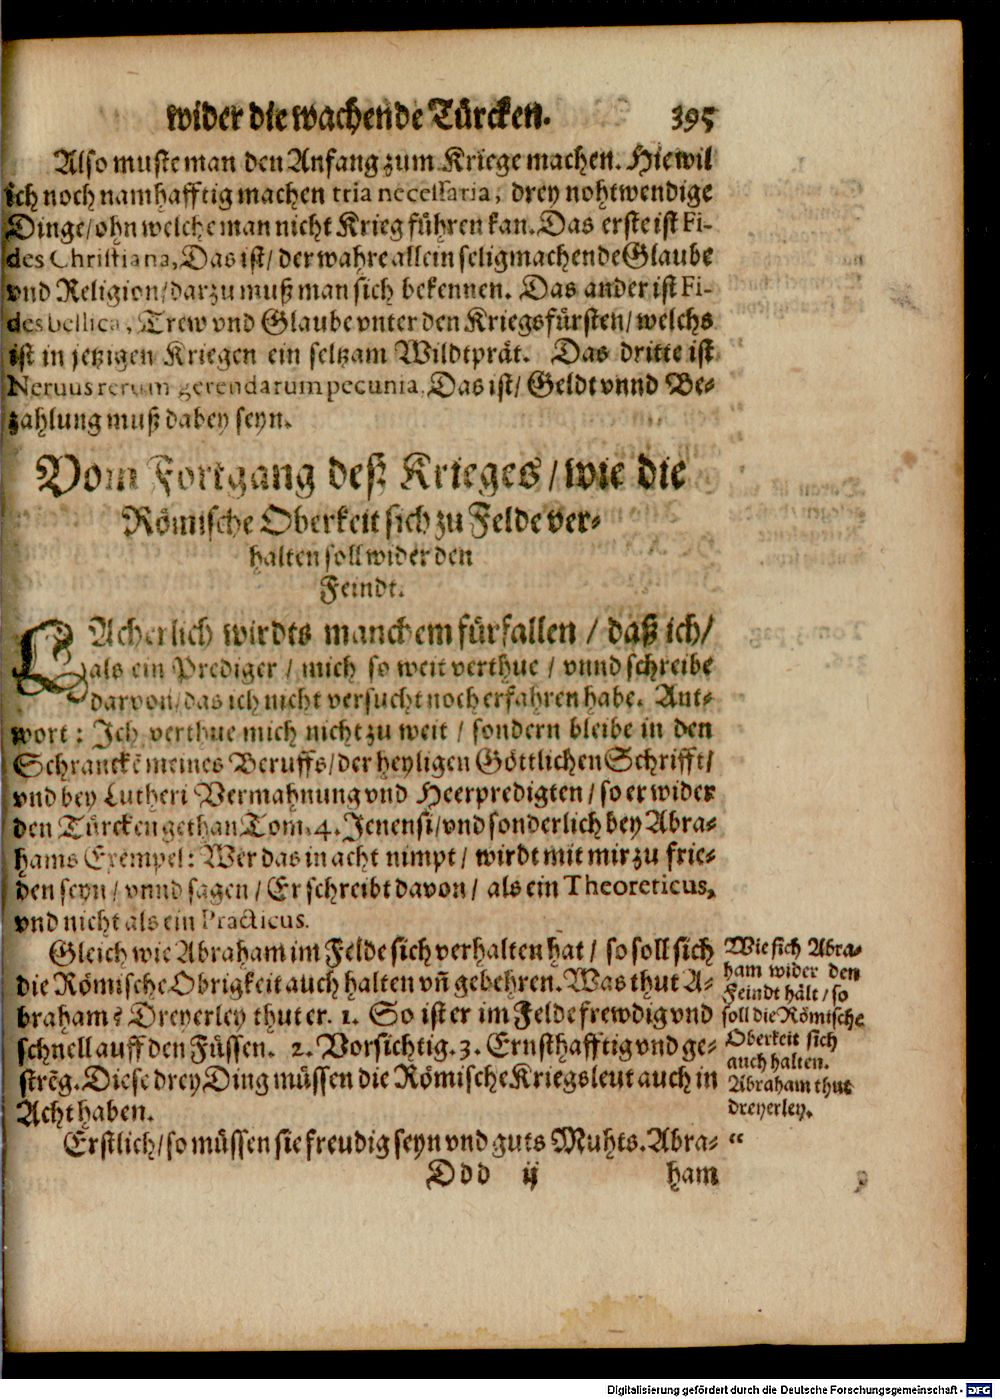 wider die wachende Türcken. 395
Also muste man den Anfang zum Kriege machen. Hie wil
ich noch namhafftig machen tria necessaria, drey nohtwendige
Dinge/ ohn welche man nicht Krieg führen kan. Das erste ist Fi-
des Christiana, Das ist/ der wahre allein seligmachende Glaube
vnd Religion/ darzu muß man sich bekennen. Das ander ist Fi-
des bellica, Trew vnd Glaube vnter den Kriegsfürsten/ welchs
ist in jetzigen Kriegen ein seltzam Wildtprät. Das dritte ist
Neruus rerum gerendarum pecunia, Das ist/ Geldt vnnd Be-
zahlung muß dabey seyn.
Vom Fortgang deß Krieges / wie die
Römische Oberkeit sich zu Felde ver-
halten soll wider den
Feindt.
LAcherlich wirdts manchem fürfallen / daß ich/
als ein Prediger / mich so weit verthue / vnnd schreibe
darvon/ das ich nicht versucht noch erfahren habe. Ant-
wort: Ich verthue mich nicht zu weit / sondern bleibe in den
Schranckẽ meines Beruffs/ der heyligen Göttlichen Schrifft/
vnd bey Lutheri Vermahnung vnd Heerpredigten / so er wider
den Türcken gethan Tom. 4. Jenensi/ vnd sonderlich bey Abra-
hams Exempel: Wer das in acht nimpt / wirdt mit mir zu frie-
den seyn / vnnd sagen / Er schreibt davon / als ein Theoreticus,
vnd nicht als ein Practicus.
Gleich wie Abraham im Felde sich verhalten hat / so soll sich
die Römische Obrigkeit auch halten vñ gebehren. Was thut A-
braham? Dreyerley thut er. 1. So ist er im Felde frewdig vnd
schnell auff den Füssen. 2. Vorsichtig. 3. Ernsthafftig vnd ge-
strẽg. Diese drey Ding müssen die Römische Kriegsleut auch in
Acht haben.
Wie sich Abra-
ham wider den
Feindt hält / so
soll die Römische
Oberkeit sich
auch halten.
Abraham thut
dreyerley.
Erstlich/ so müssen sie freudig seyn vnd guts Muhts. Abra- “
Ddd ij ham
Digitalisierung gefördert durch die Deutsche Forschungsgemeinschaft - DFG